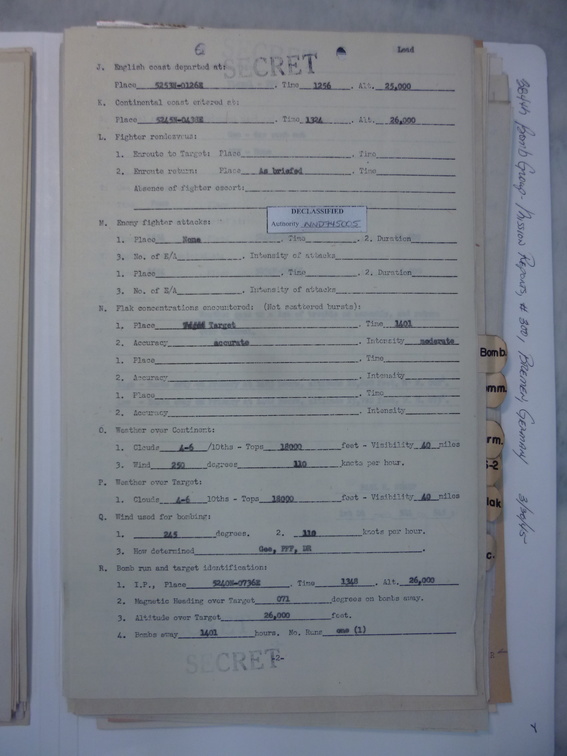 Lead
SECRET
J. English coast departed at:
Place 5253N-0126E . Time 1256 . Alt. 25,000
K. Continental coast entered at:
Place 5245N-0438E . Time 1324 . Alt. 26,000
L. Fighter rendezvous:
1. Enroute to Target: Place . Time
2. Enroute return: Place As briefed . Time
Absence of fighter escort:
DECLASSIFIED
Authority NND745005
M. Enemy fighter attacks:
1. Place None . Time . 2. Duration
3. No. of E/A . Intensity of attacks
1. Place . Time . 2. Duration
3. No. of E/A . Intensity of attacks
N. Flak concentrations encountered: (Not scattered bursts):
1. Place Target . Time 1401
2. Accuracy accurate . Intensity moderate
1. Place . Time
2. Accuracy . Intensity
1. Place . Time
2. Accuracy . Intensity
O. Weather over Continent:
1. Clouds 4-6 /10ths - Tops 18000 feet - Visibility 40 miles
3. Wind 250 degrees 110 knots per hour.
P. Weather over Target:
1. Clouds 4-6 10ths - Tops 18000 feet - Visibility 40 miles
Q. Wind used for bombing:
1. 245 degrees. 2. 110 knots per hour.
3. How determined Gee, PFF, DR .
R. Bomb run and target identification:
1. I.P., Place 5240N-0736E . Time 1348 . Alt. 26,000
2. Magnetic Heading over Target 071 degrees on bombs away.
3. Altitude over Target 26,000 feet.
4. Bombs away 1401 hours. No. Runs one (1)
SECRET
-2-
Bomb.
mm.
rm.
S-2
lak
c.
Bomb Group - Mission Reports, # 300, Bremen, Germany